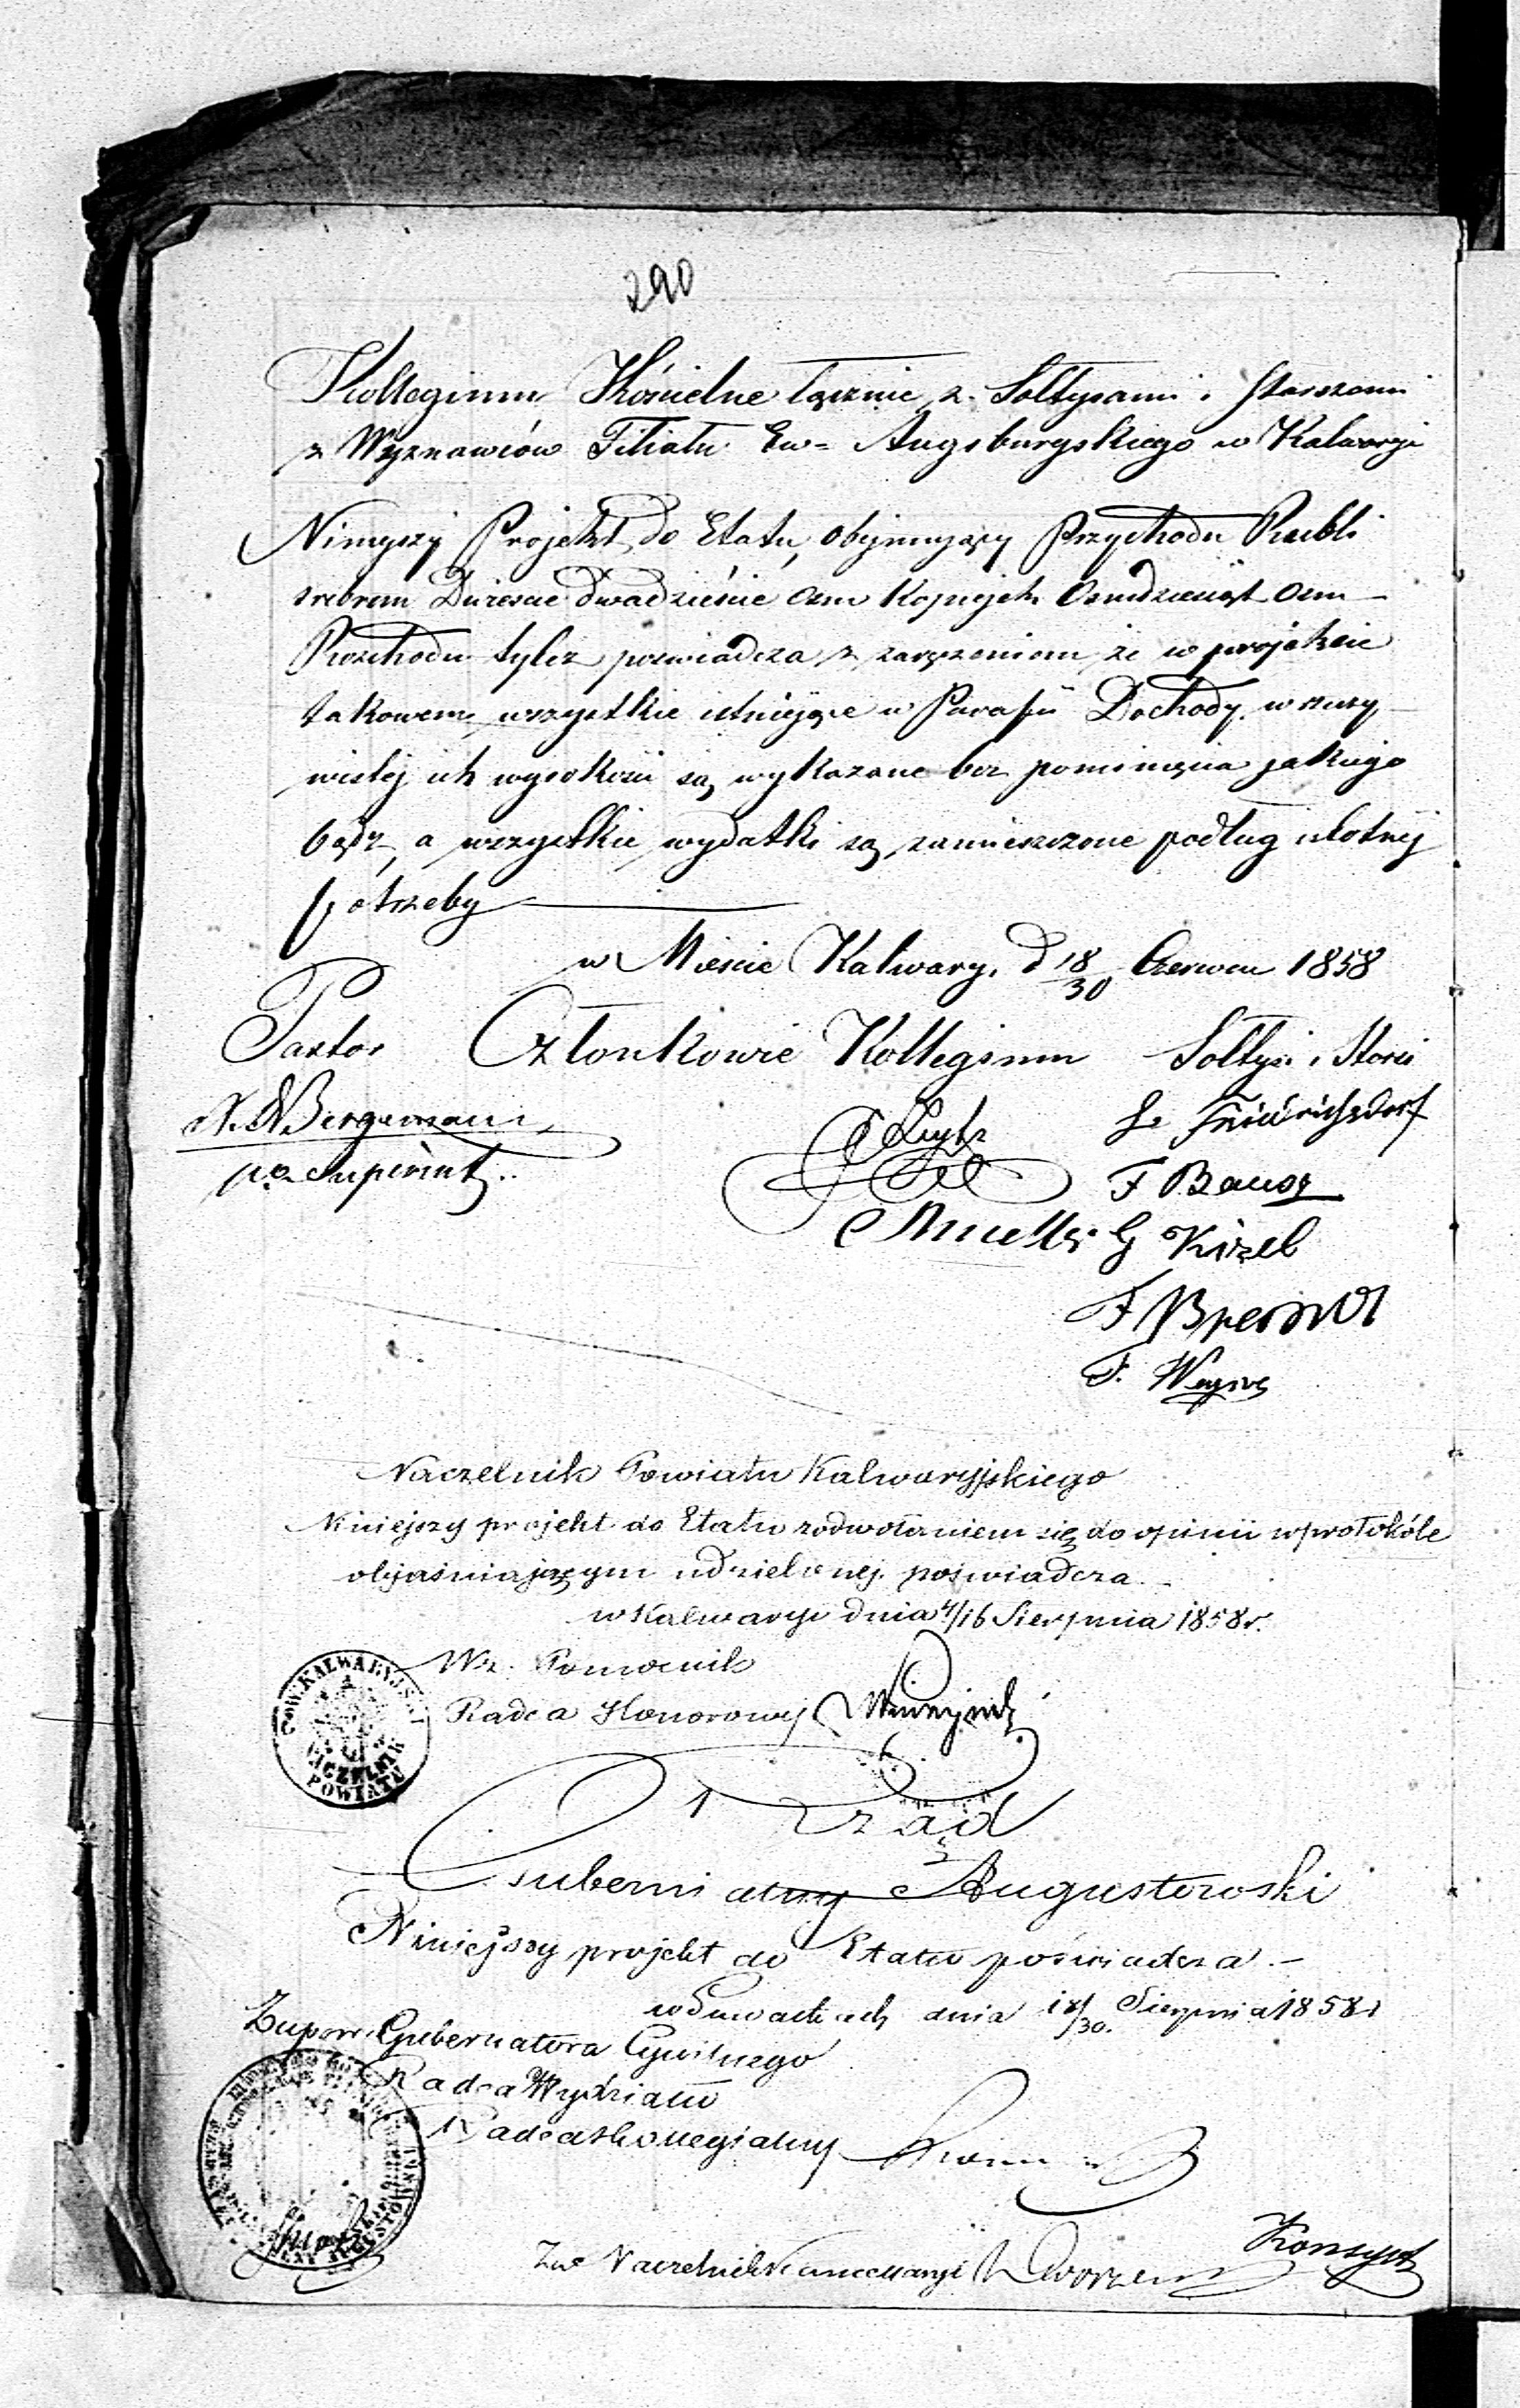 290
Kollegium Kościelne łącznie z Sołtysami i Starszemi
z Wyznawców Filiału Ew= Augsburgskiego w Kalwaryi
Niniejszy Projekt do Etatu, obejmujący Przychodu Rubli
srebrem Dwieście dwadzieścia osm Kopiejek Osmdziesiąt osm —
Rozchodu tyleż poswiadcza z zaręczeniem że w projekcie
takowem wszystkie istniejące w Parafii Dochody w rzeczy-
wistej ich wysokości są wykazane bez pominięcia jakiego
bądź, a wszystkie wydatki są zamieszczone podług istotnej
potrzeby
w Mieście Kalwaryi d 18/30 Czerwca 1858
Pastor Członkowie Kollegium Sołtysi i Starsi
Bergemann
Superint.
Friedrichsdorf
F
G Kizel
F
F.
Naczelnik Powiatu Kalwaryjskiego
Niniejszy projekt do Etatu z odwołaniem się do opinii w protokóle
objaśniającym udzielonej poświadcza. —
w Kalwaryi dnia 4/16 Sierpnia 1858 r.
Wz. Pomocnik
Radca Honorowy
POW. KALWARYJSKI
NACZELNIK
POWIATU
Rząd
Gubernialny Augustowski
Niniejszy projekt do Etatu poświadcza. —
w Suwałkach dnia 18/30. Sierpnia 1858 r
Zupow. Gubernatora Cywilnego
Radca Wydziału
Radca Kollegialny
Naczelnik Kancellaryi